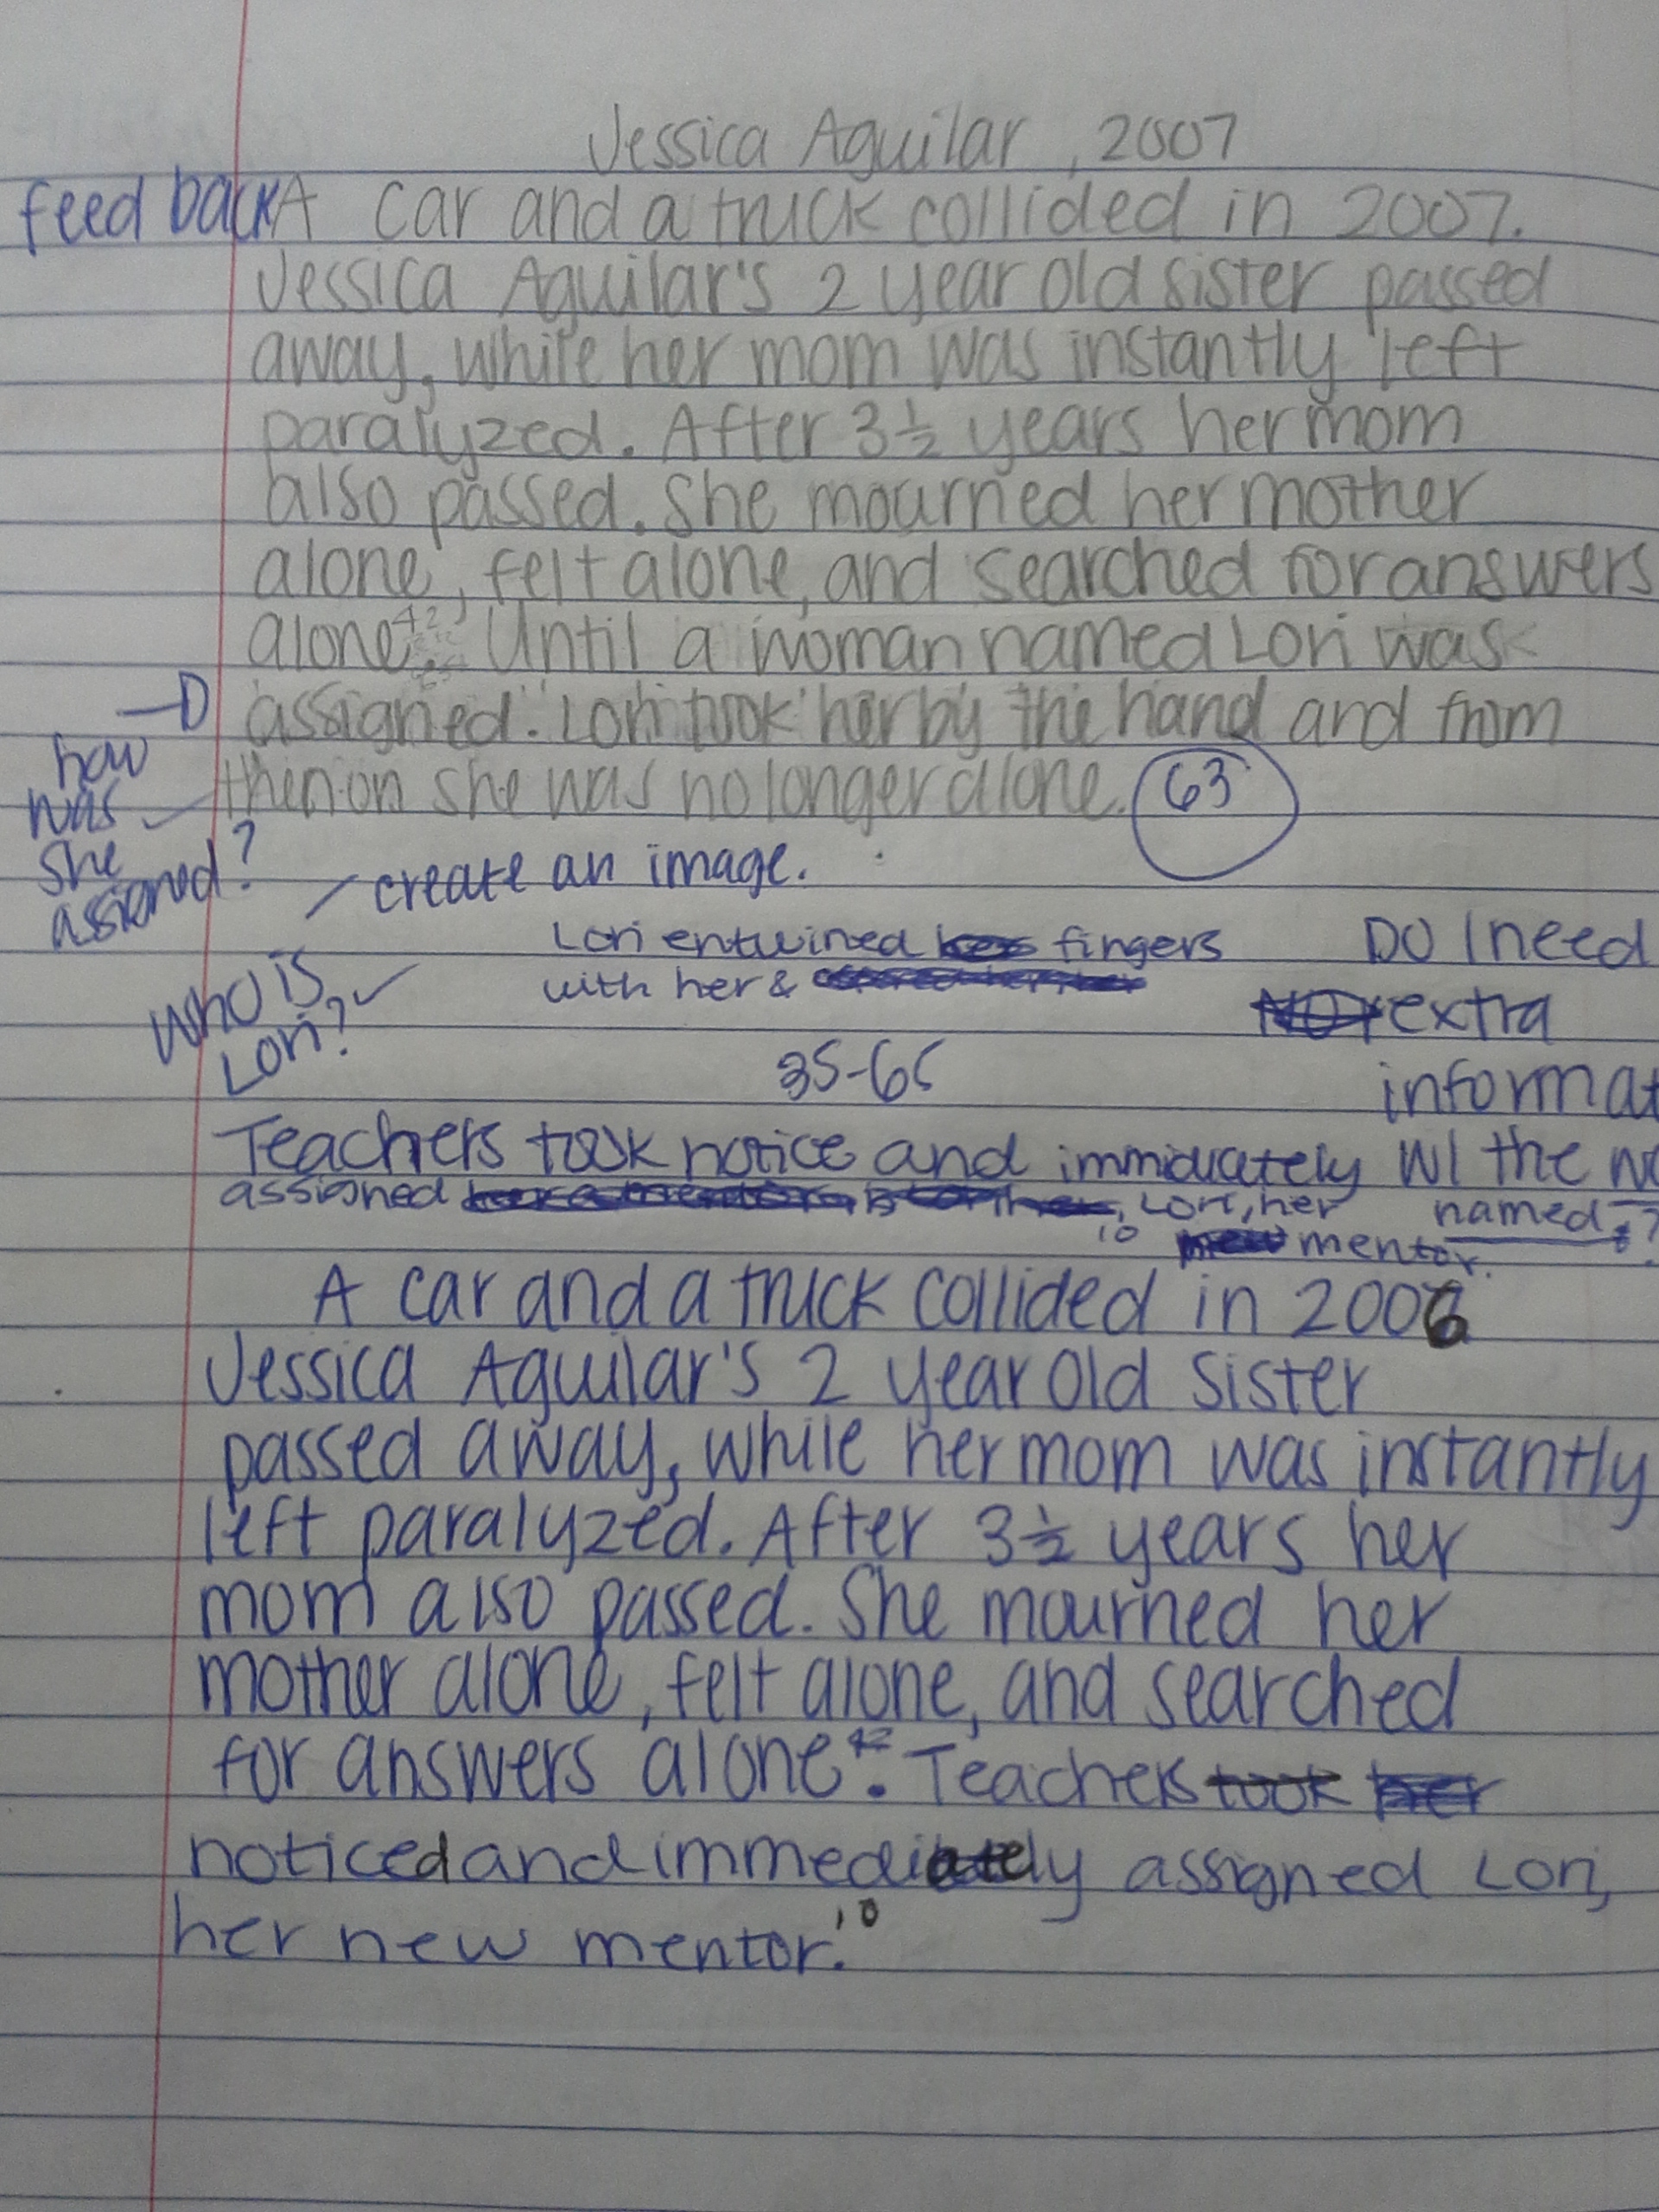 Jessica Aguilar, 2007
feed back A car and a truck collided in 2007.
Jessica Aguilar's 2 year old sister passed
away, while her mom was instantly left
paralyzed. After 3 1/2 years her mom
also passed. She mourned her mother
alone, felt alone, and searched for answers
alone. 42 Until a woman named Lori was
assigned. Lori took her by the hand and from
then on she was no longer alone. 63
how
was
she
assigned?
create an image.
Lori entwined fingers
with her &
Who is
Lori?
DO I need
extra
informat
W/ the
named?
35-65
Teachers took notice and immidiately
assigned Lori, her
10 mentor.
A car and a truck collided in 2006
Jessica Aguilar's 2 year old sister
passed away, while her mom was instantly
left paralyzed. After 3 1/2 years her
mom also passed. She mourned her
mother alone, felt alone, and searched
for answers alone. 42 Teachers took her
noticed and immediately assigned Lori,
her new mentor. 10